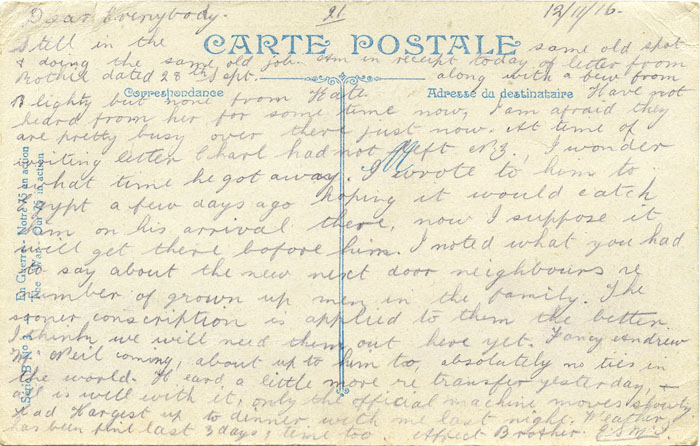 Dear Everybody. 21 12/11/16.
Still in the same old spot
CARTE POSTALE
& doing the same old job. Am in receipt today of letter from
Mother dated 28th Spt. along with a few from
Correspondance Adresse du destinataire
Blighty but none from Kate. Have not
heard from her for some time now, I am afraid they
are pretty busy over there just now. At time of
writing letter Charl had not left NZ, I wonder
what time he got away. I wrote to him to
Egypt a few days ago hoping it would catch
him on his arrival there, now I suppose it
will get there before him. I noted what you had
to say about the new next door neighbours re
number of grown up men in the family. The
sooner conscription is applied to them the better
I think we will need them out here yet. Fancy Andrew
McNeil coming, about up to him to, absolutely no ties in
the world. It said a little more re transfer yesterday,
all is well with it, only the official machine moves slowly
Had Hargest up to dinner with me last night. Weather
has been fine last 3 days, time too Affect Brother
En Guerre - Notre 75 en action
The War - Our 75 in action
Série B No 3